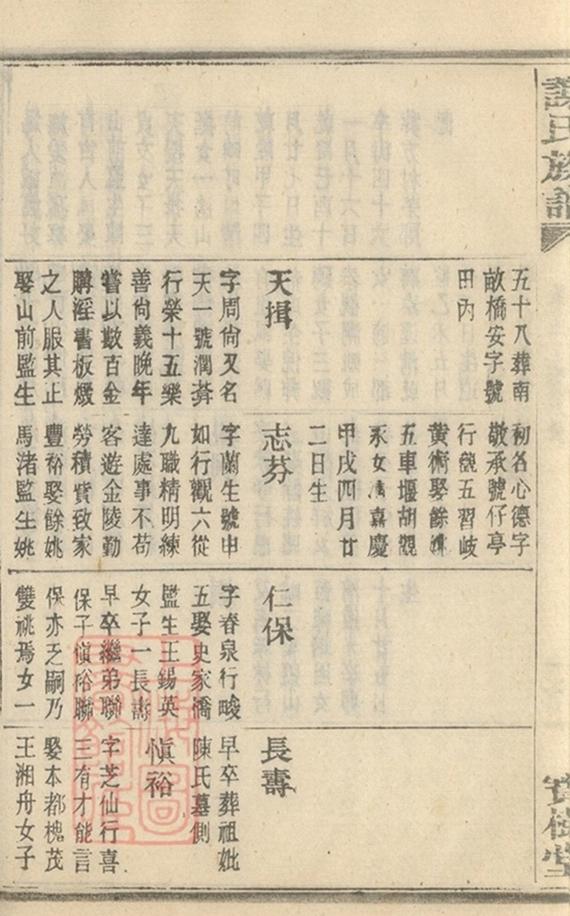 謝氏族譜
寶樹堂
五十八葬南
畝橋安字號
田內
天揖
字周尚又名
天一號潤葊
行榮十五樂
善尙義晚年
嘗以數百金
購淫書板燬
之人服其正
娶山前監生
初名心德字
敬承號仔亭
行觀五習岐
黃術娶餘姚
五車堰胡觀
永女嘉慶
甲戌四月廿
二日生
志芬
字蘭生號申
如行觀六從
九職精明練
達處事不苟
客遊金陵勤
勞積貲致家
豐裕娶餘姚
馬渚監生姚
仁保
字春泉行畯
五娶史家橋
監生王錫英
女子一長壽
早卒繼弟聯
保子愼裕聯
保亦乏嗣乃
雙祧焉女一
長壽
早卒葬祖妣
陳氏墓側
愼裕
字芝仙行喜
三有才能言
娶本都槐茂
王湘舟女子